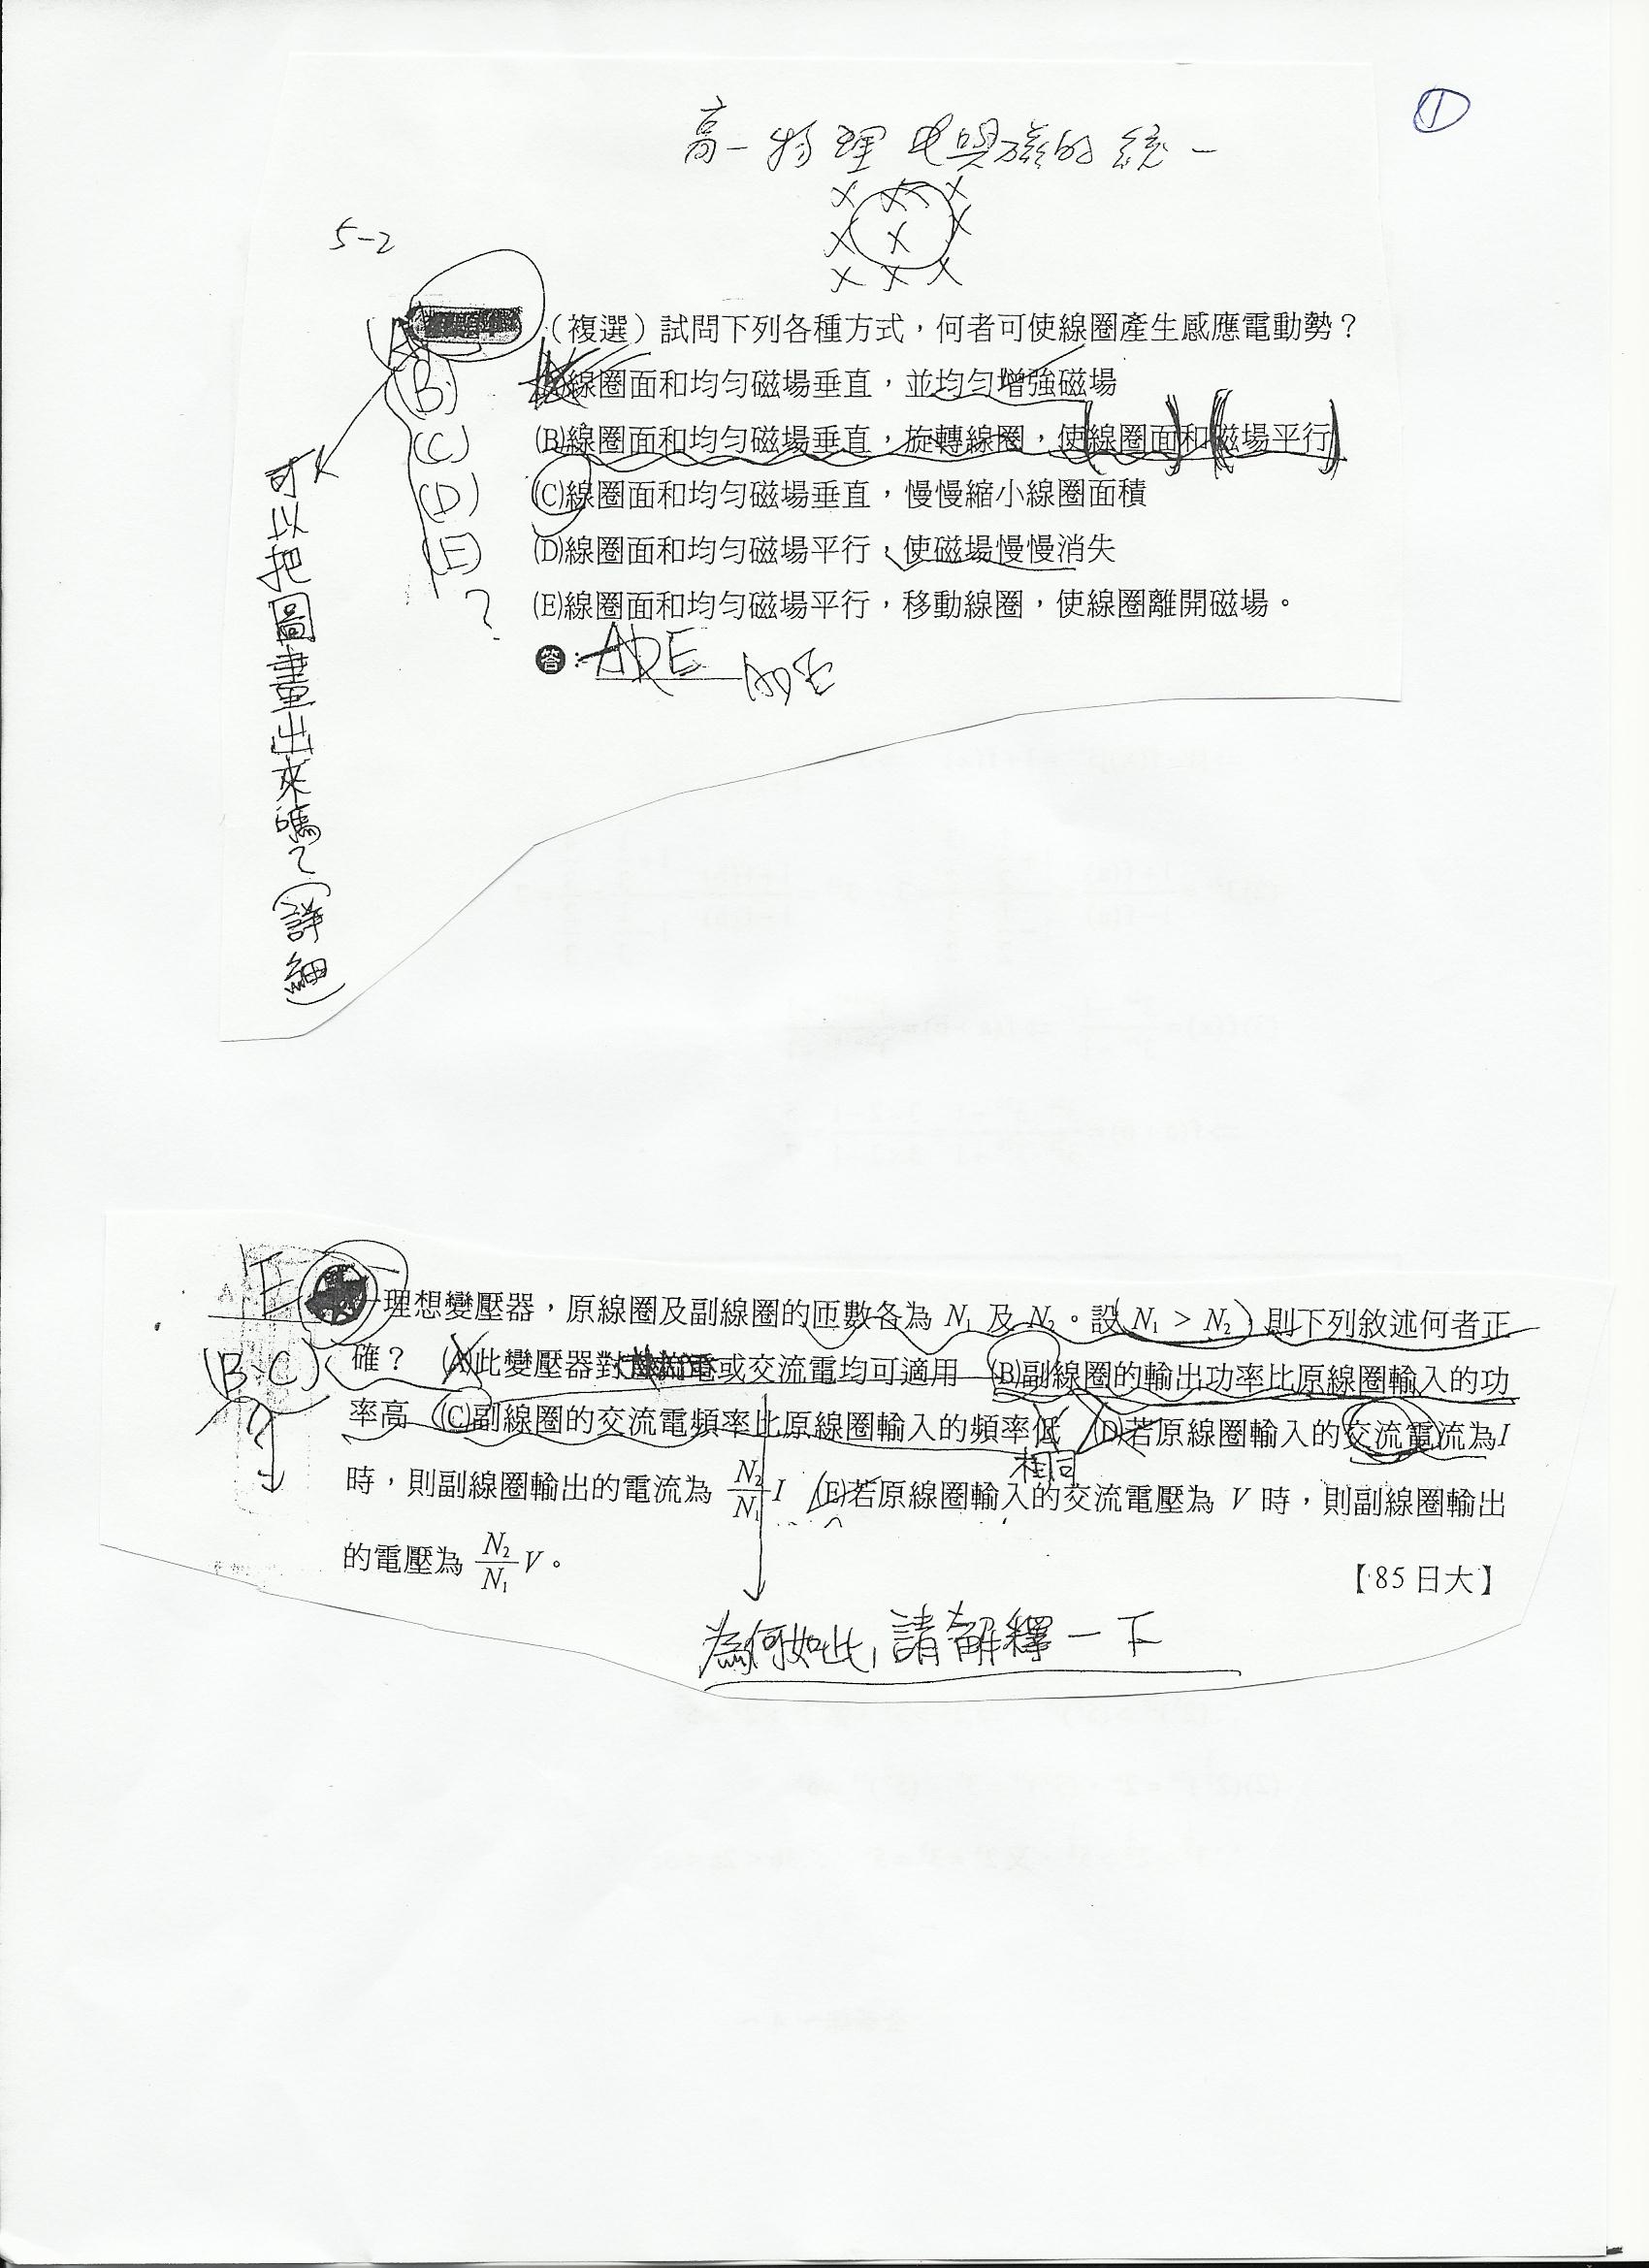 ①
高一物理 电與磁的統一
5-2
(複選)試問下列各種方式,何者可使線圈產生感應電動勢?
線圈面和均勻磁場垂直,並均勻增強磁場
(B)線圈面和均勻磁場垂直,旋轉線圈,使線圈面和磁場平行
(C)線圈面和均勻磁場垂直,慢慢縮小線圈面積
(D)線圈面和均勻磁場平行,使磁場慢慢消失
(E)線圈面和均勻磁場平行,移動線圈,使線圈離開磁場。
答:ADE ADE
(A)
(B)
(C)
(D)
(E)
?
可以把圖畫出來嗎?(詳細)
E 一理想變壓器,原線圈及副線圈的匝數各為 N₁ 及 N₂。設(N₁ > N₂)則下列敘述何者正
(B、C) 確? (A)此變壓器對直流電或交流電均可適用 (B)副線圈的輸出功率比原線圈輸入的功
率高 (C)副線圈的交流電頻率比原線圈輸入的頻率低 (D)若原線圈輸入的交流電流為I
相同
時,則副線圈輸出的電流為 N₂/N₁ I (E)若原線圈輸入的交流電壓為 V 時,則副線圈輸出
的電壓為 N₂/N₁ V。 【85 日大】
為何如此,請解釋一下